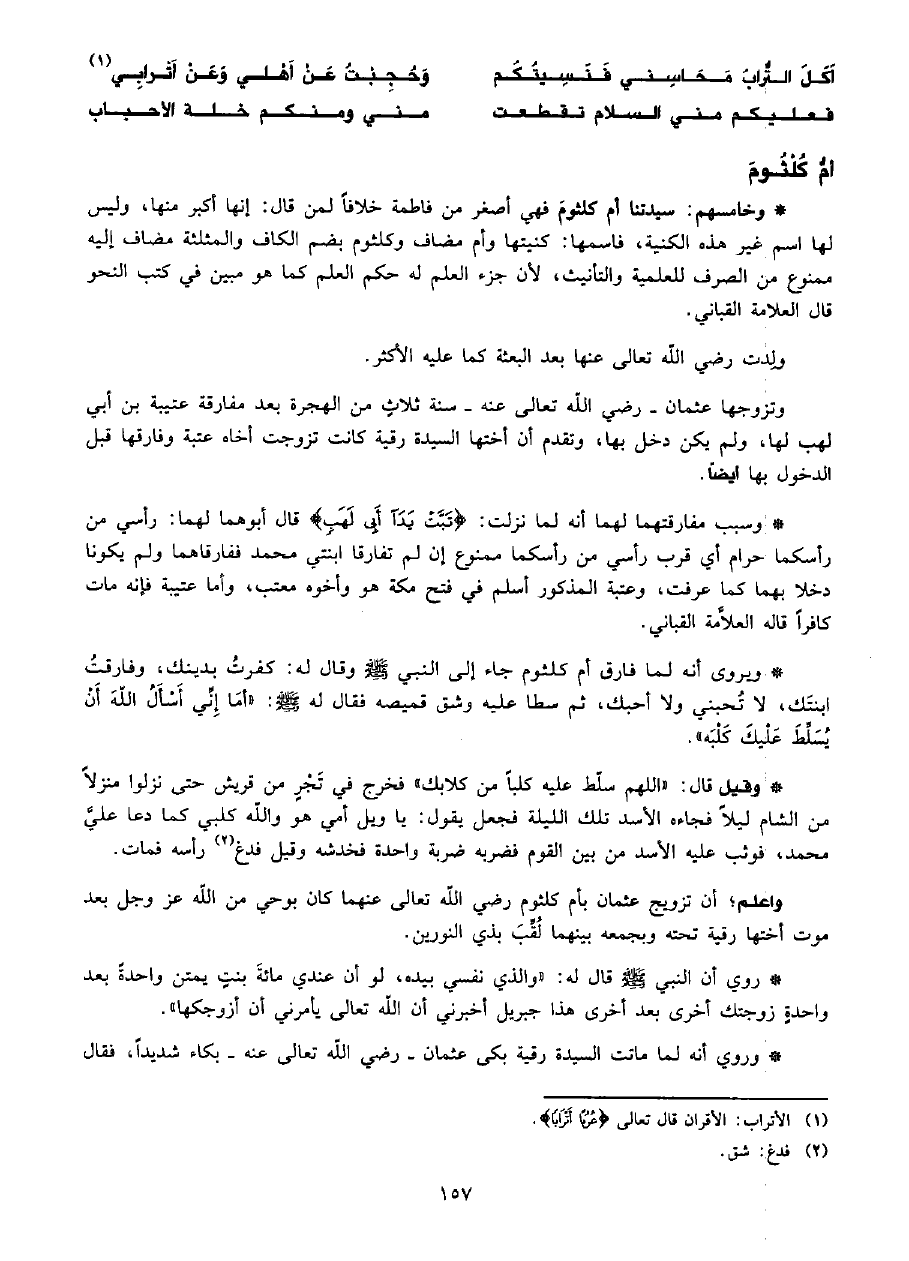 أَكَلَ التُّرابَ مَحَاسِنِي فَنَسِيتُكُم وَحُجِبْتُ عَنْ أَهْلِي وَعَنْ أَتْرابِي(١)
فعليكم مني السلام تقطعت مني ومنكم خلة الأحباب
أُمُّ كُلْثُومَ
* وخامسهم: سيدتنا أم كلثومَ فهي أصغر من فاطمة خلافاً لمن قال: إنها أكبر منها، وليس
لها اسم غير هذه الكنية، فاسمها: كنيتها وأم مضاف وكلثوم بضم الكاف والمثلثة مضاف إليه
ممنوع من الصرف للعلمية والتأنيث، لأن جزء العلم له حكم العلم كما هو مبين في كتب النحو
قال العلامة القباني.
ولِدت رضي الله تعالى عنها بعد البعثة كما عليه الأكثر.
وتزوجها عثمان ـ رضي الله تعالى عنه ـ سنة ثلاثٍ من الهجرة بعد مفارقة عتيبة بن أبي
لهب لها، ولم يكن دخل بها، وتقدم أن أختها السيدة رقية كانت تزوجت أخاه عتبة وفارقها قبل
الدخول بها أيضاً.
* وسبب مفارقتهما لهما أنه لما نزلت: ﴿تَبَّتْ يَدَآ أَبِى لَهَبٍ﴾ قال أبوهما لهما: رأسي من
رأسكما حرام أي قرب رأسي من رأسكما ممنوع إن لم تفارقا ابنتي محمد ففارقاهما ولم يكونا
دخلا بهما كما عرفت، وعتبة المذكور أسلم في فتح مكة هو وأخوه معتب، وأما عتيبة فإنه مات
كافراً قاله العلاَّمة القباني.
* ويروى أنه لما فارق أم كلثوم جاء إلى النبي ﷺ وقال له: كفرتُ بدينك، وفارقتُ
ابنتَك، لا تُحبني ولا أحبك، ثم سطا عليه وشق قميصه فقال له ﷺ: «أمَا إِنِّي أَسْأَلُ اللهَ أَنْ
يُسَلِّطَ عَلَيْكَ كَلْبَه».
* وقيل قال: «اللهم سلّط عليه كلباً من كلابك» فخرج في تَجْرٍ من قريش حتى نزلوا منزلاً
من الشام ليلاً فجاءه الأسد تلك الليلة فجعل يقول: يا ويل أمي هو والله كلبي كما دعا عليَّ
محمد، فوثب عليه الأسد من بين القوم فضربه ضربة واحدة فخدشه وقيل فدغ(٢) رأسه فمات.
واعلم؛ أن تزويج عثمان بأم كلثوم رضي الله تعالى عنهما كان بوحي من الله عز وجل بعد
موت أختها رقية تحته وبجمعه بينهما لُقِّبَ بذي النورين.
* روي أن النبي ﷺ قال له: «والذي نفسي بيده، لو أن عندي مائةَ بنتٍ يمتن واحدةً بعد
واحدةٍ زوجتك أخرى بعد أخرى هذا جبريل أخبرني أن الله تعالى يأمرني أن أزوجكها».
* وروي أنه لما ماتت السيدة رقية بكى عثمان ـ رضي الله تعالى عنه ـ بكاء شديداً، فقال
(١) الأتراب: الأقران قال تعالى ﴿عُرُبًا أَتْرَابًا﴾.
(٢) فدغ: شق.
١٥٧